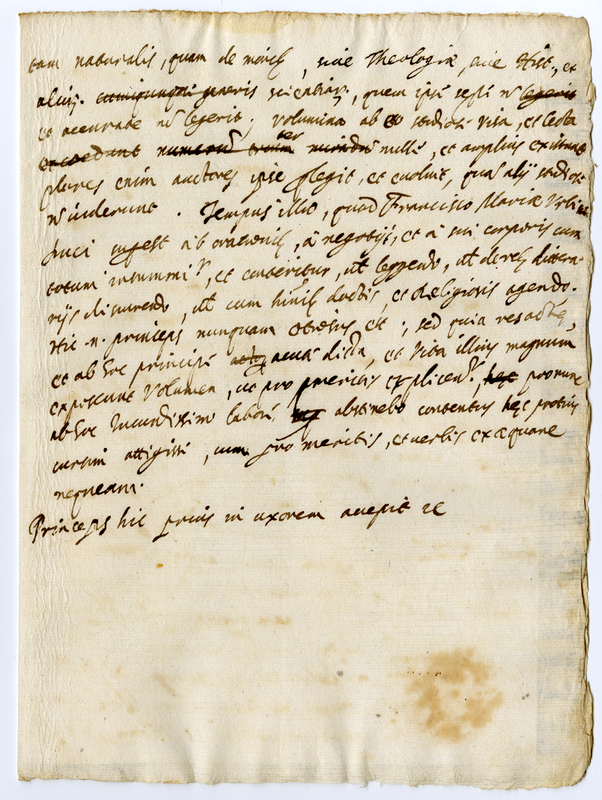 tam naturalis, quam de moribus, sive Theologiæ, sive Hist., et
alius. cuiuscunque generis scientiar., quem ipse sepe non legerit
et accurate non legerit; volumina ab eo studiose visa, et lecta
excedunt numerum ter mille, et amplius existunt
plures enim auctores ipse legit, et evoluit, quam alij studiose
non viderunt. Tempus illud, quod Francisco Mariæ Urbini
Duci superest ab orationibus, à negotijs, et à sui corporis cura
totum insumitur, et conteritur, vel legendo, vel de rebus litera
rijs discurrendo, vel cum hominibus doctis, et Religiosis agendo.
Hic n. princeps nunquam otiosus est; sed quia res actæ,
et ab hoc principe acta dicta, et vita illius magnum
exposcunt Volumen, ut pro meritis explicent., hac pro nunc
ab hoc Iucundissimo labore abstinebo contentus hæc potius
cursim attigisse, cum pro meritis, et verbis exæquare
nequeam.
Princeps hic prius in uxorem accepit